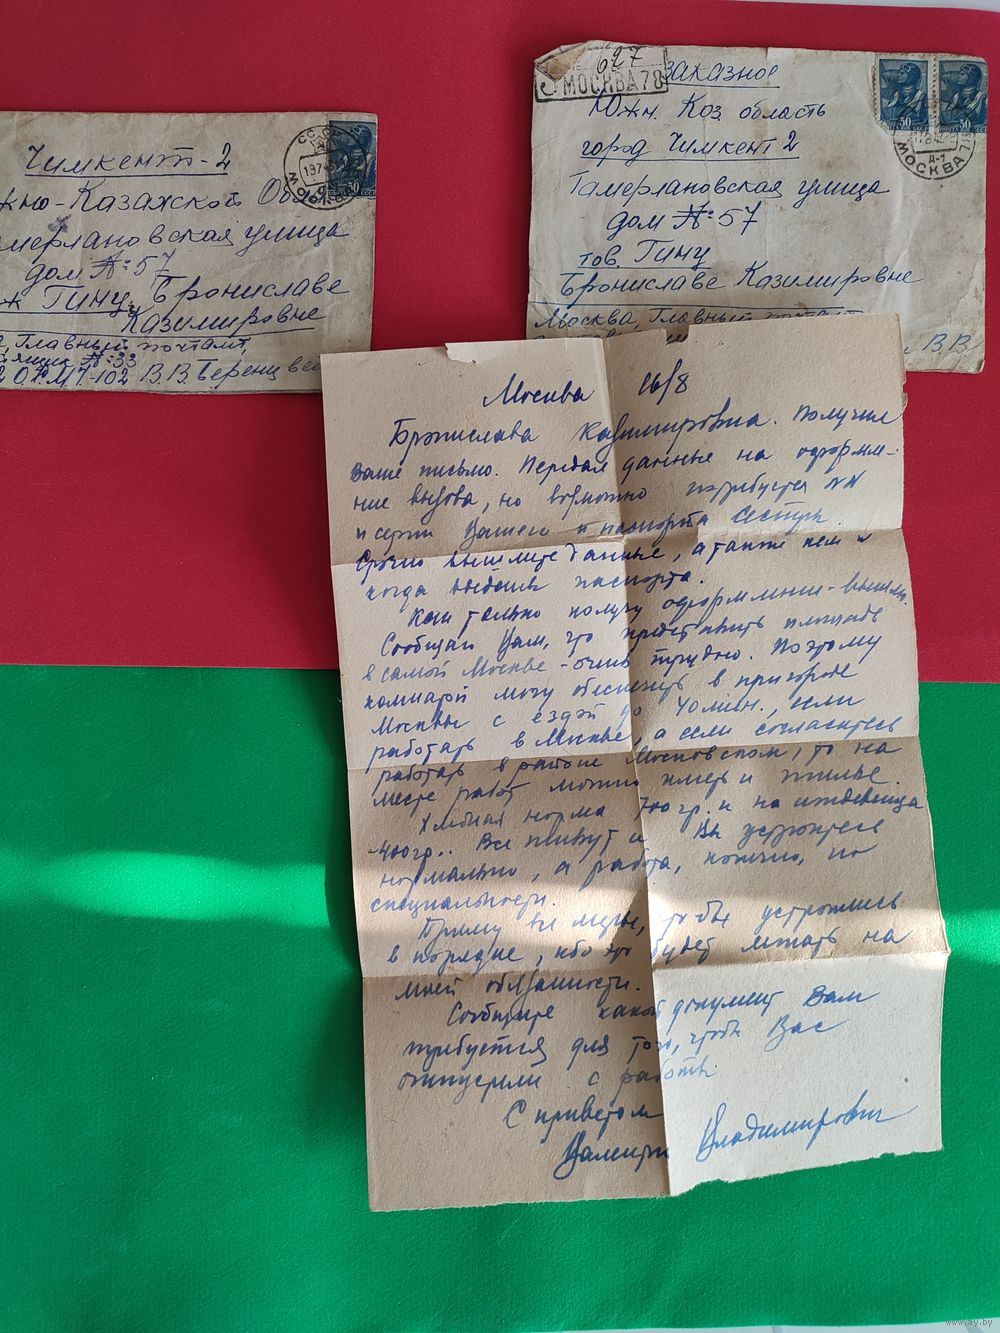 Чимкент-2
жно-Казахской Об
мерлановская улица
дом № 57
Гинц, Брониславе
Казимировне
Главный почтамт,
ящик № 33
В.В. Беренцвей
СССР
МОСКВА
30
627
МОСКВА 78
Заказное
Южн. Каз область
город Чимкент 2
Тамерлановская улица
дом № 57
тов. Гинц
Брониславе Казимировне
Москва, Главный почтамт
В.В.
30
30
МОСКВА
Москва 16/8
Бронислава Казимировна. Получил
Ваше письмо. Передал данные на оформле-
ние вызова, но возможно потребуется NN
и серии Вашего и паспорта сестры.
Срочно вышлите данные, а также кем и
когда выданы паспорта.
Как только получу оформление - вышлю.
Сообщаю Вам, что представить площадь
в самой Москве - очень трудно. Поэтому
комнатой могу обеспечить в пригороде
Москвы с ездой до 40 мин., если
работать в Москве, а если согласитесь
работать в районе Московском, то на
месте работ можно иметь и жилье.
Хлебная норма 700 гр. и на иждевенца
400 гр.. Все живут и Вы устроитесь
нормально, а работа, конечно, по
специальности.
Приму все меры, чтобы устроились
в порядке, ибо это будет лежать на
моей обязанности.
Сообщите какой документ Вам
требуется для того, чтобы Вас
отпустили с работы.
С приветом
Валентин Владимирович
www.ay.by